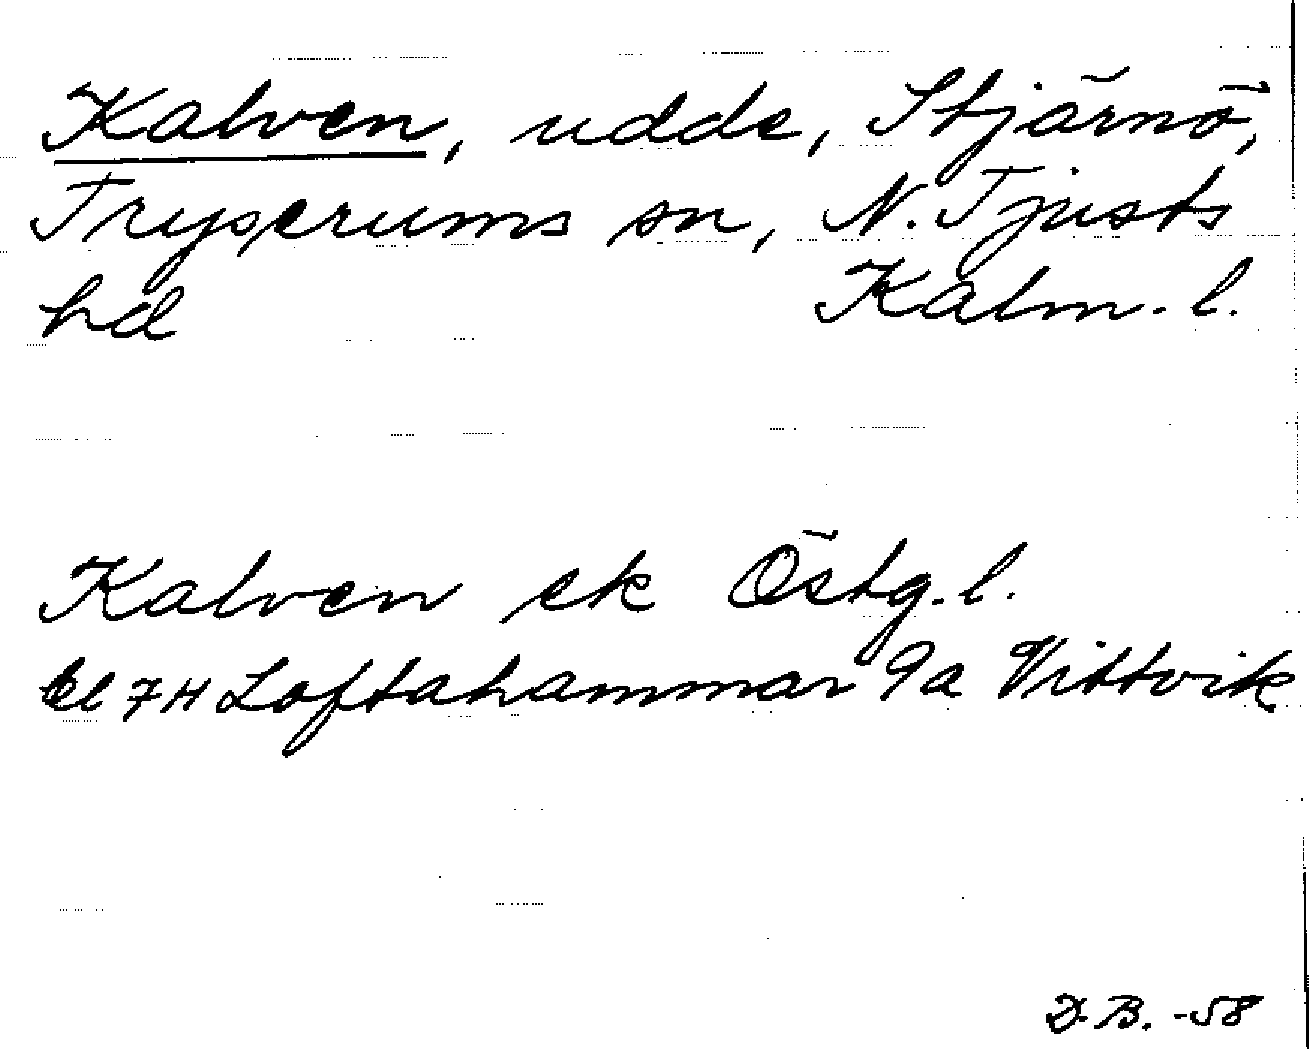 Kalven, udde, Stjärnö,
Tryserums sn, N. Tjusts
hd Kalm. l.
Kalven ek Östg. l.
bl 7H Loftahammar 9a Vittvik
D.B. -58